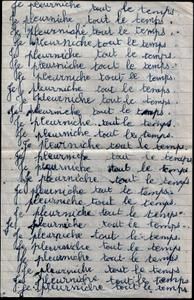 Je pleurniche tout le temps
Je pleurniche tout le temps
Je pleurniche tout le temps.
Je pleurniche tout le temps.
Je pleurniche tout le temps.
Je pleurniche tout le temps.
Je pleurniche tout le temps.
Je pleurniche tout le temps.
Je pleurniche tout le temps.
Je pleurniche tout le temps.
Je pleurniche tout le temps.
Je pleurniche tout le temps.
Je pleurniche tout le temps.
Je pleurniche tout le temps.
Je pleurniche tout le temps.
Je pleurniche tout le temps.
Je pleurniche tout le temps.
Je pleurniche tout le temps.
Je pleurniche tout le temps.
Je pleurniche tout le temps.
Je pleurniche tout le temps.
Je pleurniche tout le temps.
Je pleurniche tout le temps.
Je pleurniche tout le temps.